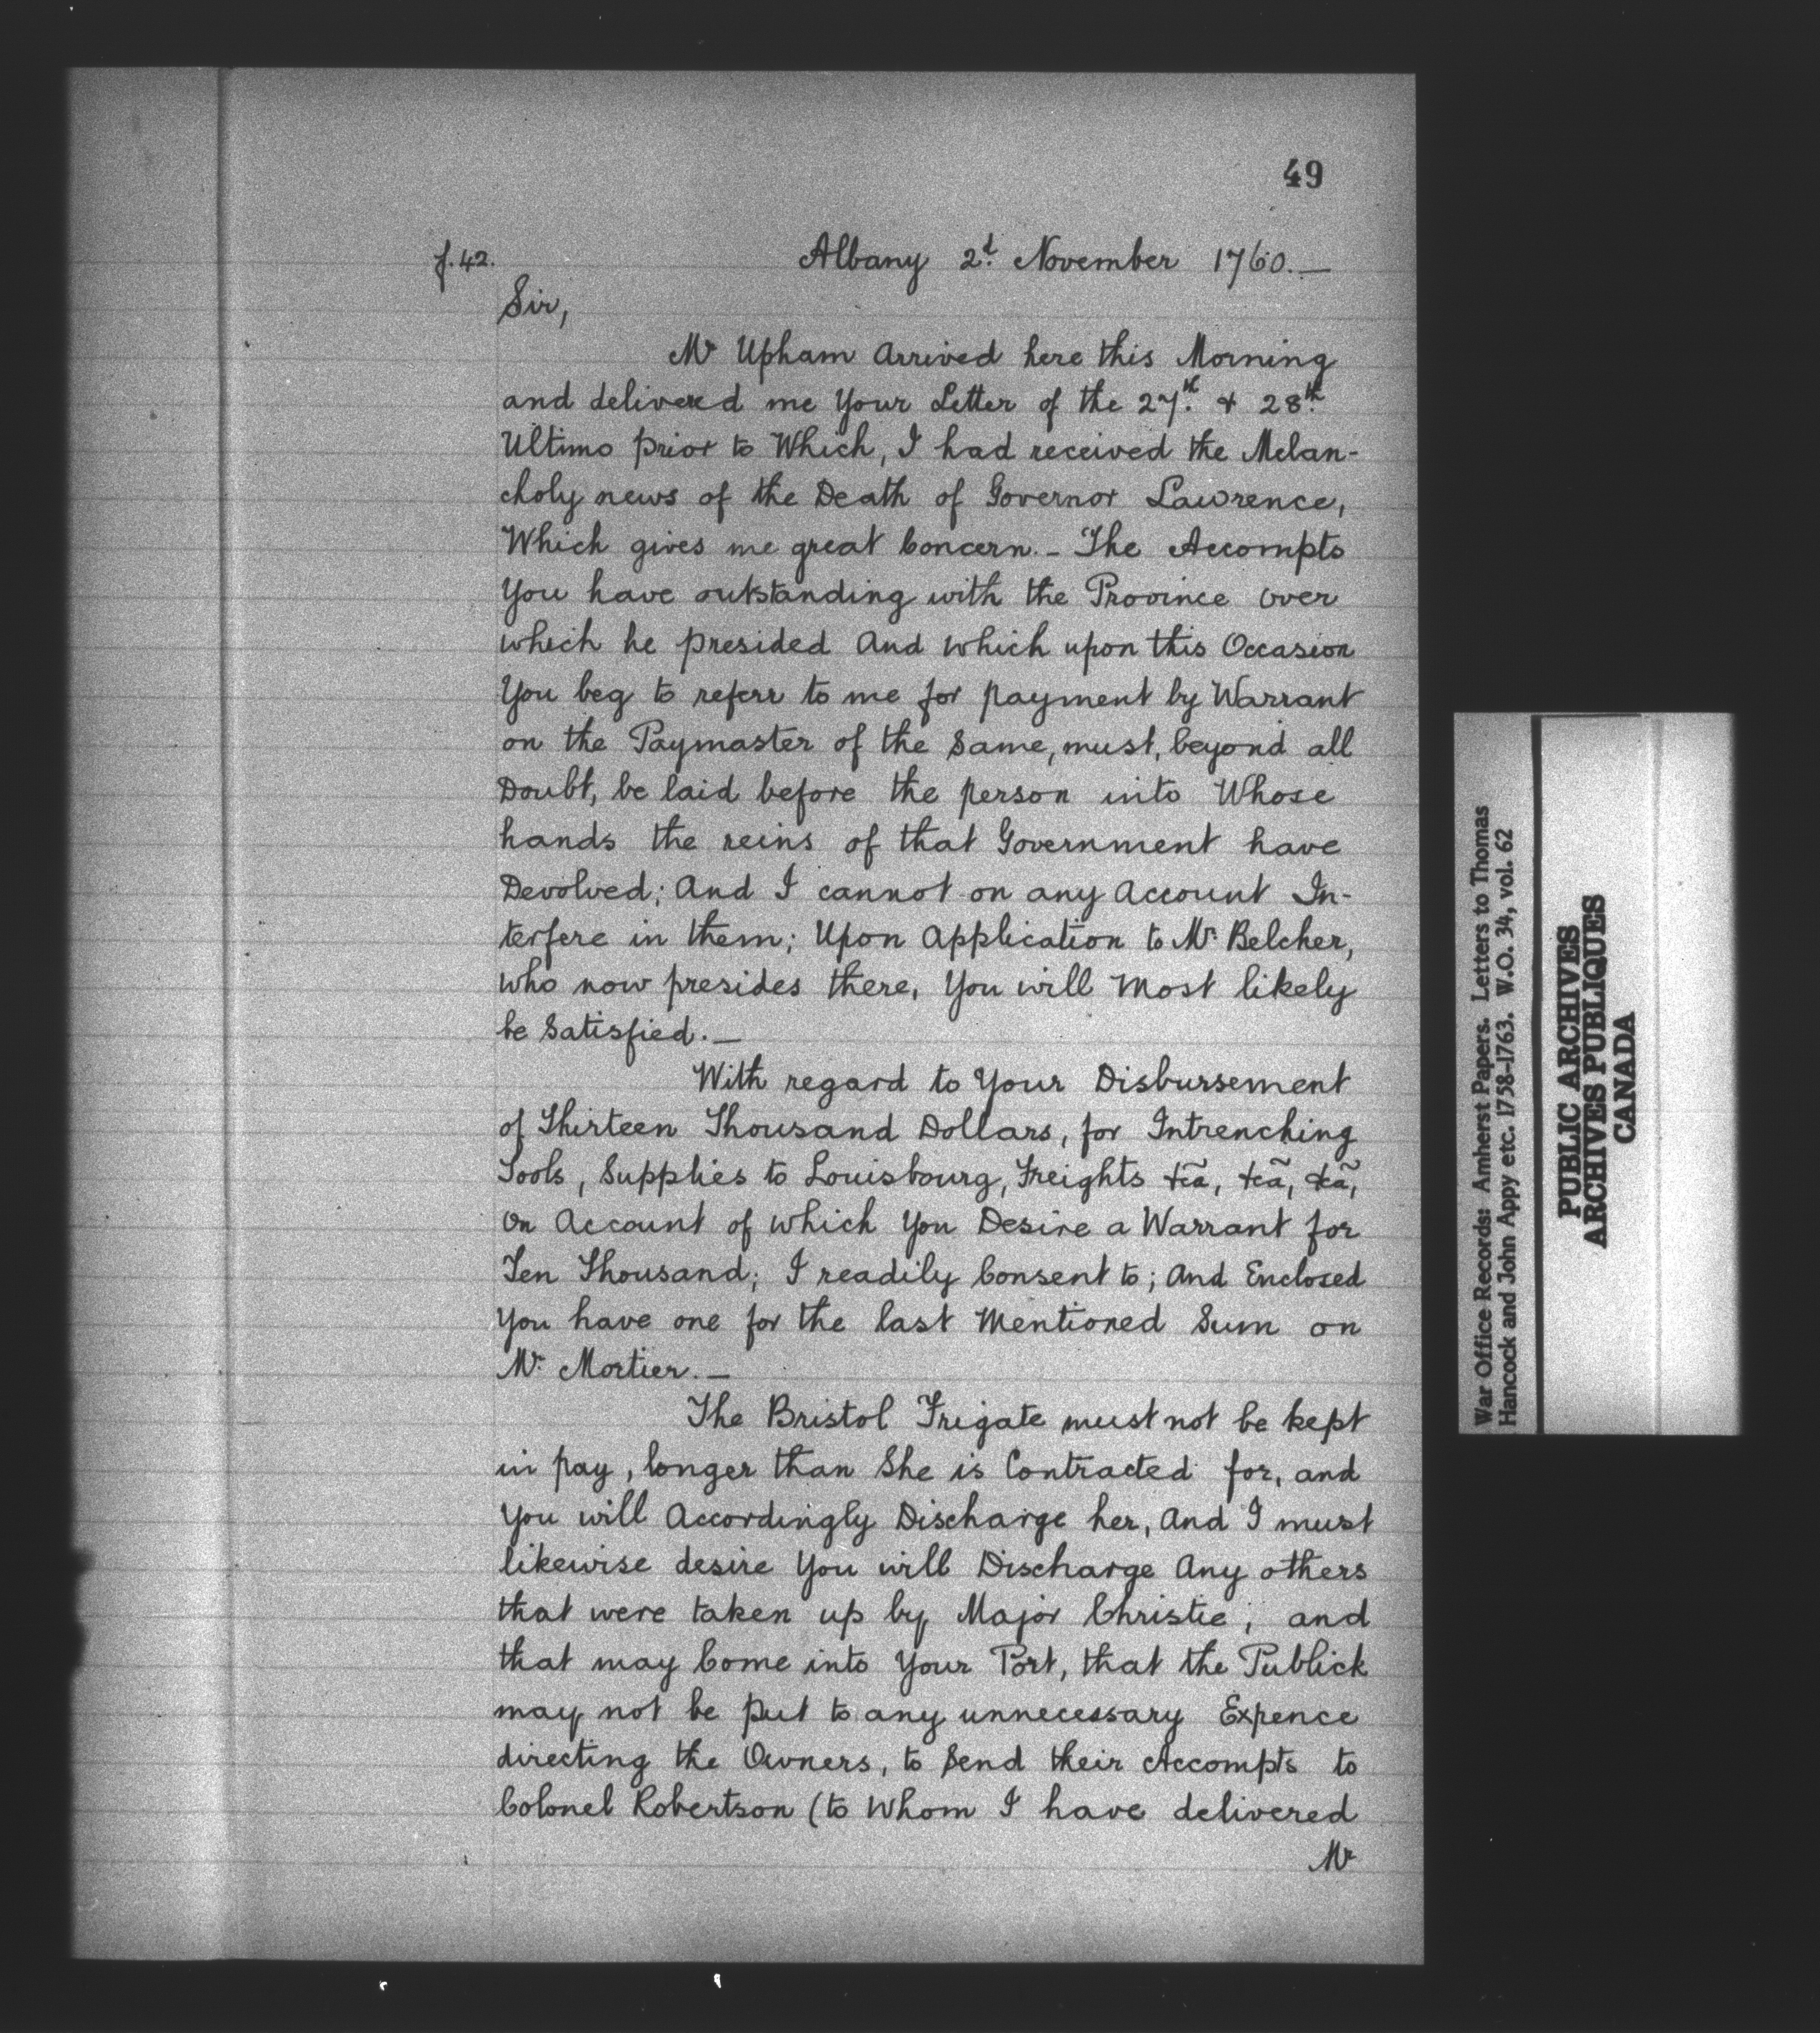 49
f. 42.
Albany 2d. November 1760.—
Sir,
Mr Upham Arrived here this Morning
and delivered me Your Letter of the 27th. & 28th.
Ultimo prior to Which, I had received the Melan-
choly news of the Death of Governor Lawrence,
Which gives me great Concern. - The Accompts
You have outstanding with the Province over
which he presided And which upon this Occasion
You beg to referr to me for payment by Warrant
on the Paymaster of the Same, must, beyond all
Doubt, be laid before the person into Whose
hands the reins of that Government have
Devolved; And I cannot on any Account In-
terfere in them; Upon Application to Mr. Belcher,
who now presides there, You will Most likely
be Satisfied.—
With regard to Your Disbursement
of Thirteen Thousand Dollars, for Intrenching
Tools, Supplies to Louisbourg, Freights &cã, &cã, &cã,
On Account of which You Desire a Warrant for
Ten Thousand; I readily Consent to; And Enclosed
You have one for the last Mentioned Sum on
Mr. Mortier.—
The Bristol Frigate must not be kept
in pay, longer than She is Contracted for, and
You will Accordingly Discharge her, And I must
likewise desire You will Discharge Any others
that were taken up by Major Christie, and
that may Come into Your Port, that the Publick
may not be put to any unnecessary Expence
directing the Owners, to Send their Accompts to
Colonel Robertson (to Whom I have delivered
Mr
War Office Records: Amherst Papers. Letters to Thomas
Hancock and John Appy etc. 1758-1763. W.O. 34, vol. 62
PUBLIC ARCHIVES
ARCHIVES PUBLIQUES
CANADA